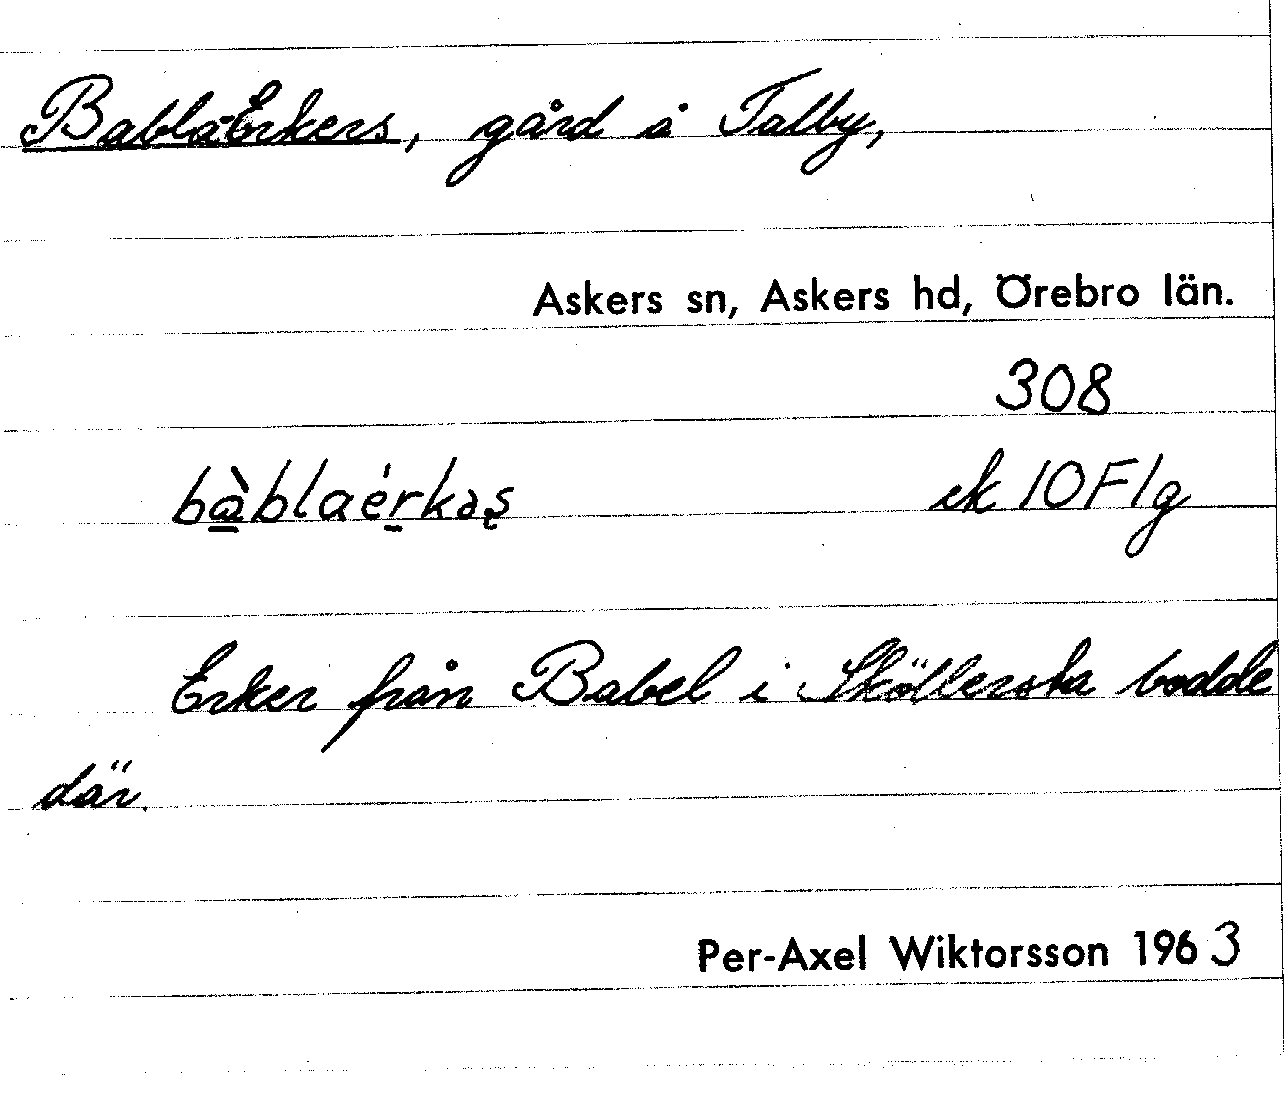 Babla-Erkers, gård å Talby,
Askers sn, Askers hd, Örebro län.
308
bàblaérkəs ek 10 F1g
Erker från Babel i Sköllersta bodde
där.
Per-Axel Wiktorsson 1963